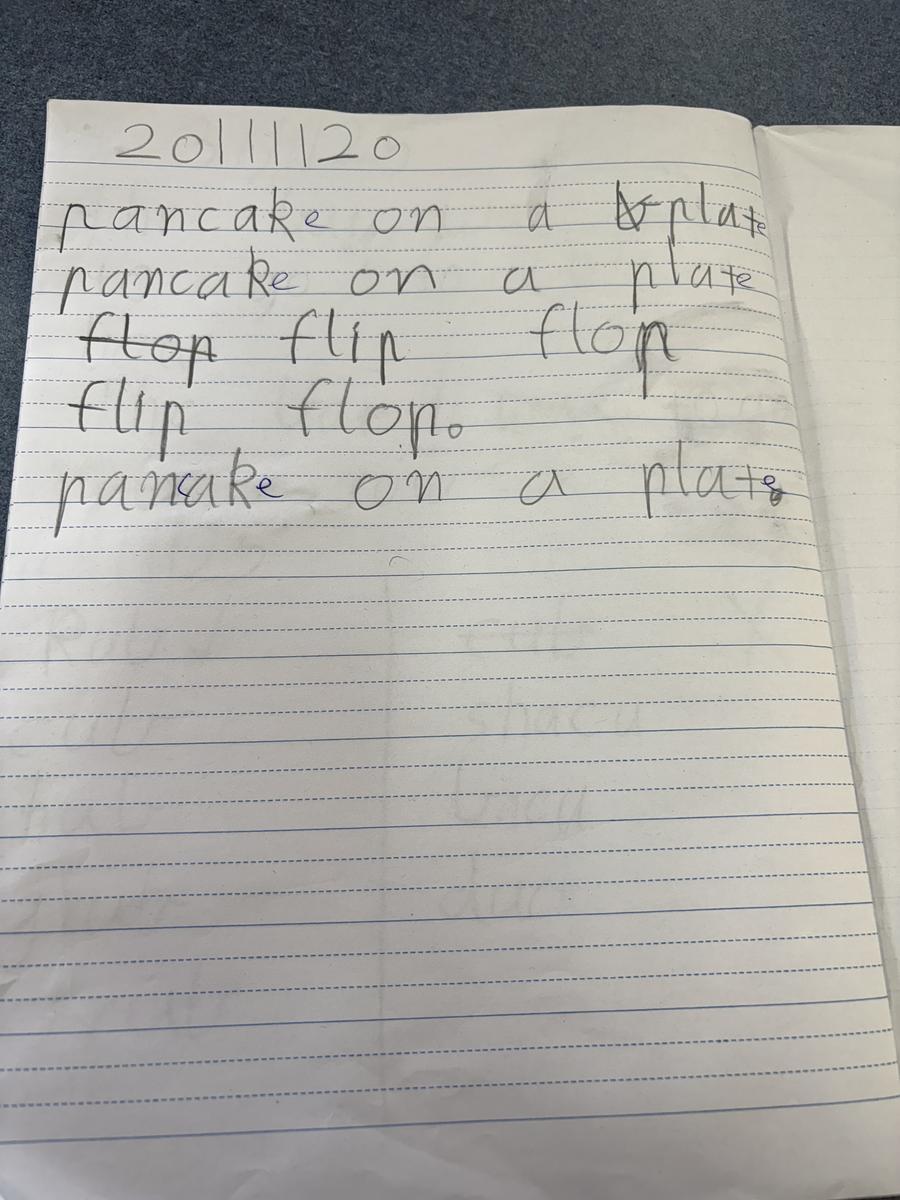 20111120
pancake on a plate
pancake on a plate
flop flip flop
flip flop.
pancake on a plate